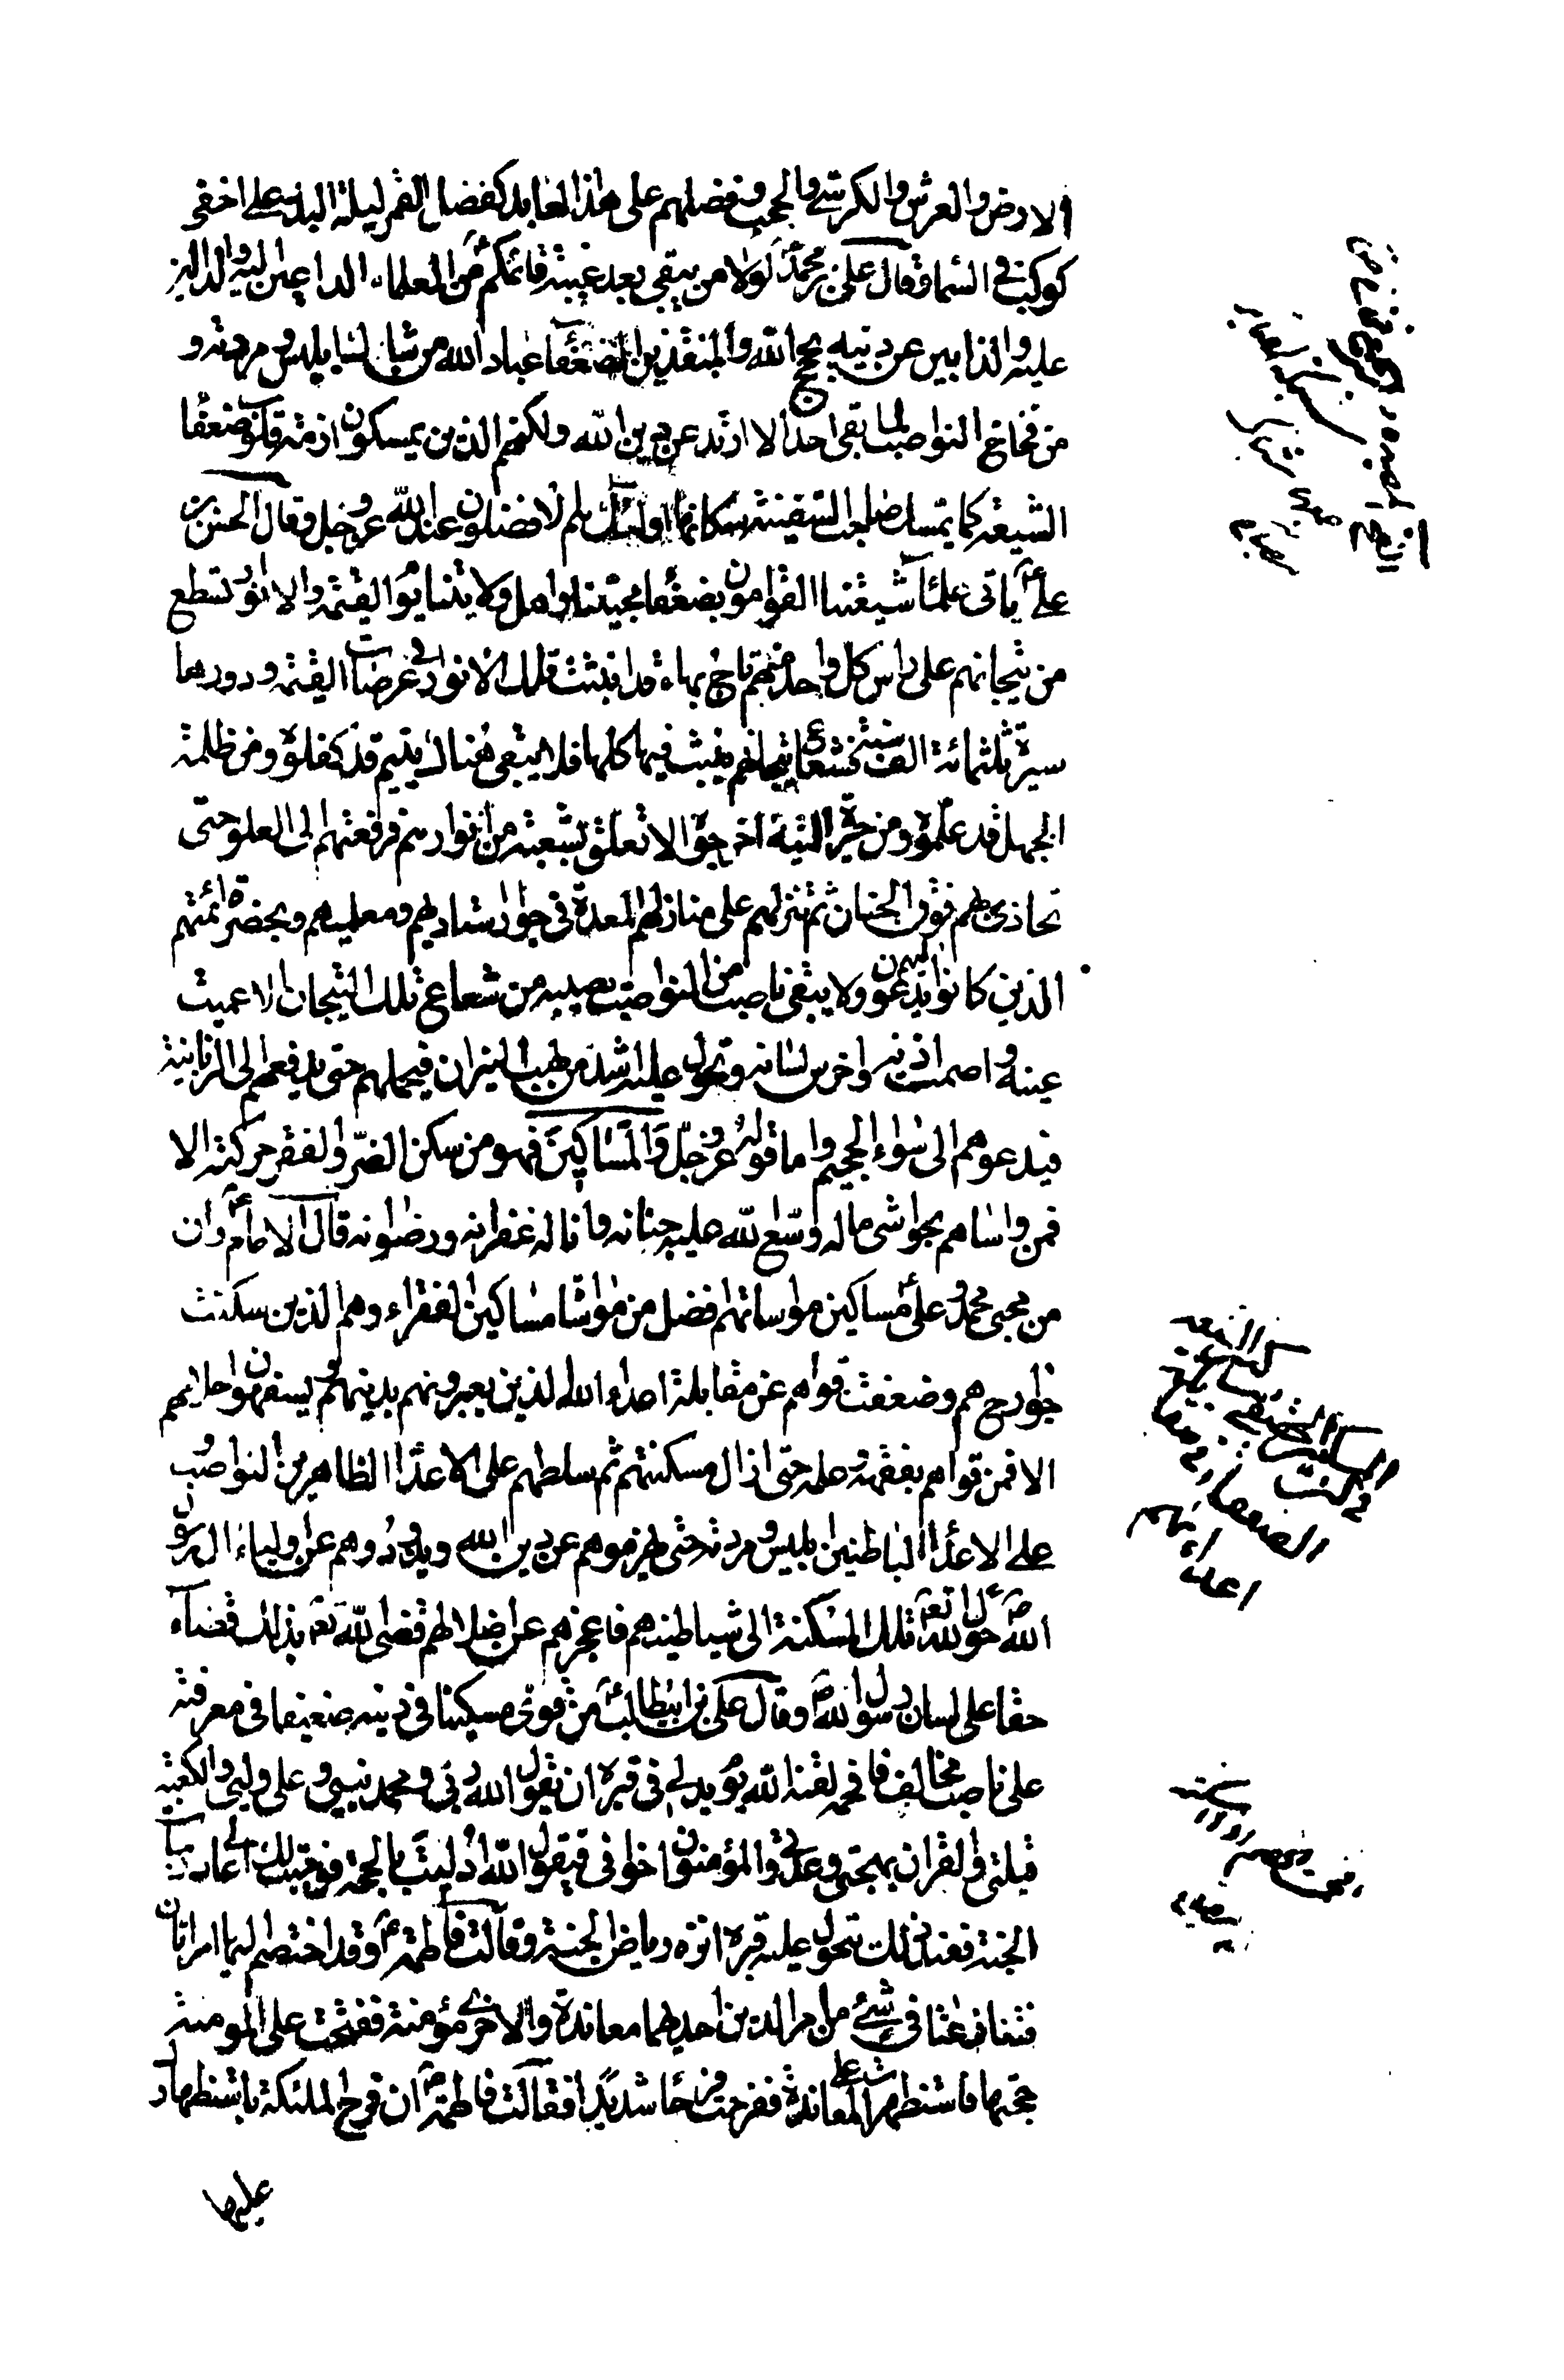 الارض والعرش والكرسي والحجب وفضلهم على هذا العابد كفضل القمر ليلة البدر على اخفى
كوكب في السماء وقال علي بن محمد ع لولا من يبقى بعد غيبة قائمكم ع من العلماء الداعين اليه والدالين
عليه والذابين عن دينه بحجج الله والمنقذين لضعفاء عباد الله من شباك ابليس ومردته و
من فخاخ النواصب لما بقي احد الا ارتد عن دين الله ولكنهم الذين يمسكون ازمة قلوب ضعفاء
الشيعة كما يمسك صاحب السفينة سكانها اولئك هم الافضلون عند الله عز وجل وقال الحسن بن
علي ع ياتي علماء شيعتنا القوامون بضعفاء محبينا واهل ولايتنا يوم القيمة والانوار تسطع
من تيجانهم على راس كل واحد منهم تاج بهاء قد انبثت تلك الانوار في عرصات القيمة ودورها
سيرة ثلثمائة الف سنة فشعاع تيجانهم ينبث فيها كلها فلا يبقى هناك يتيم قد كفلوه ومن ظلمة
الجهل قد علموه ومن حيرة التيه اخرجوه الا تعلق بشعبة من انوارهم فرفعتهم الى العلو حتى
تحاذى بهم فوق الجنان ثم تنزلهم على منازلهم المعدة في جوار استاديهم ومعلميهم وبحضرة ائمتهم
الذين كانوا يدعون اليهم ولا يبقى ناصب من النواصب يصيبه من شعاع تلك التيجان الا عميت
عينه و اصمت اذنه واخرس لسانه وتحول عليه اشد من لهب النيران فيحملهم حتى يدفعهم الى الزبانية
فيدعوهم الى سواء الجحيم واما قوله عز وجل والمساكين فهو من سكن الضر والفقر حركته الا
فمن واساهم بحواشي ماله وسع الله عليه جنانه وانا له غفرانه ورضوانه قال الامام ع وان
من محبي محمد وعلي ع مساكين مواساتهم افضل من مواساة مساكين الفقراء وهم الذين سكنت
جوارحهم وضعفت قواهم عن مقابلة اعداء الله الذين يعيرونهم بدينهم ويسفهون احلامهم
الا فمن قواهم بفقهه وعلمه حتى ازال مسكنتهم ثم سلطهم على الاعداء الظاهرين النواصب و
على الاعداء الباطنين ابليس ومردته حتى يهزموهم عن دين الله ويذودوهم عن اولياء ال رسول
الله ص حول الله تع تلك المسكنة الى شياطينهم فاعجزهم عن اضلالهم قضى الله تع بذلك قضاء
حقا على لسان رسول الله ص وقال علي بن ابيطالب ع من قوى مسكينا في دينه ضعيفا في معرفته
على ناصب مخالف فافحمه لقنه الله يوم يدلى في قبره ان يقول الله ربي ومحمد نبيي وعلي وليي والكعبة
قبلتي والقران بهجتي وعدتي والمؤمنون اخواني فيقول الله ادليت بالحجة فوجبت لك اعالي درجات
الجنة فعند ذلك يتحول عليه قبره انزه رياض الجنة وقالت فاطمة ع وقد اختصم اليها امراتان
فتنازعتا في شئ من امر الدين احديهما معاندة والاخرى مؤمنة ففتحت على المومنة
حجتها فاستظهرت على المعاندة ففرحت فرحا شديدا فقالت فاطمة ع ان فرح الملئكة باستظهارك
عليها